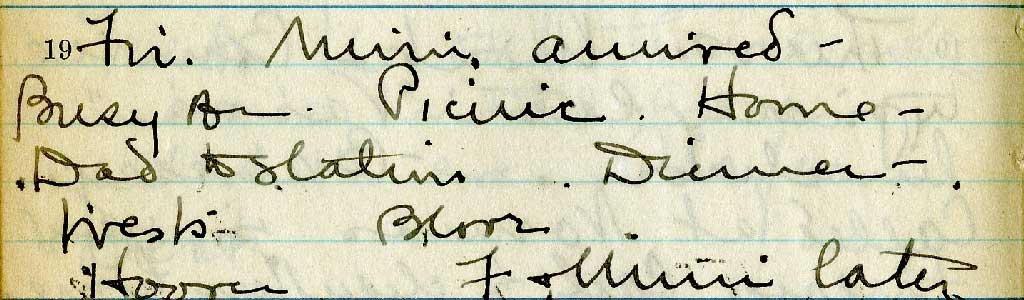 19 Fri. Mimi arrived -
Busy Picnic. Home -
Dad to station. Dinner -.
West Bloor.
Hoover F & Mimi later